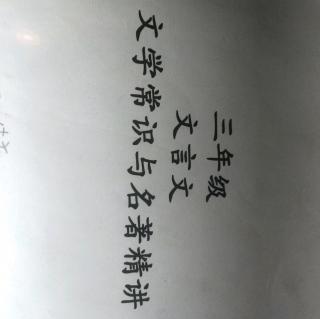 三年级
文言文
文学常识与名著精讲